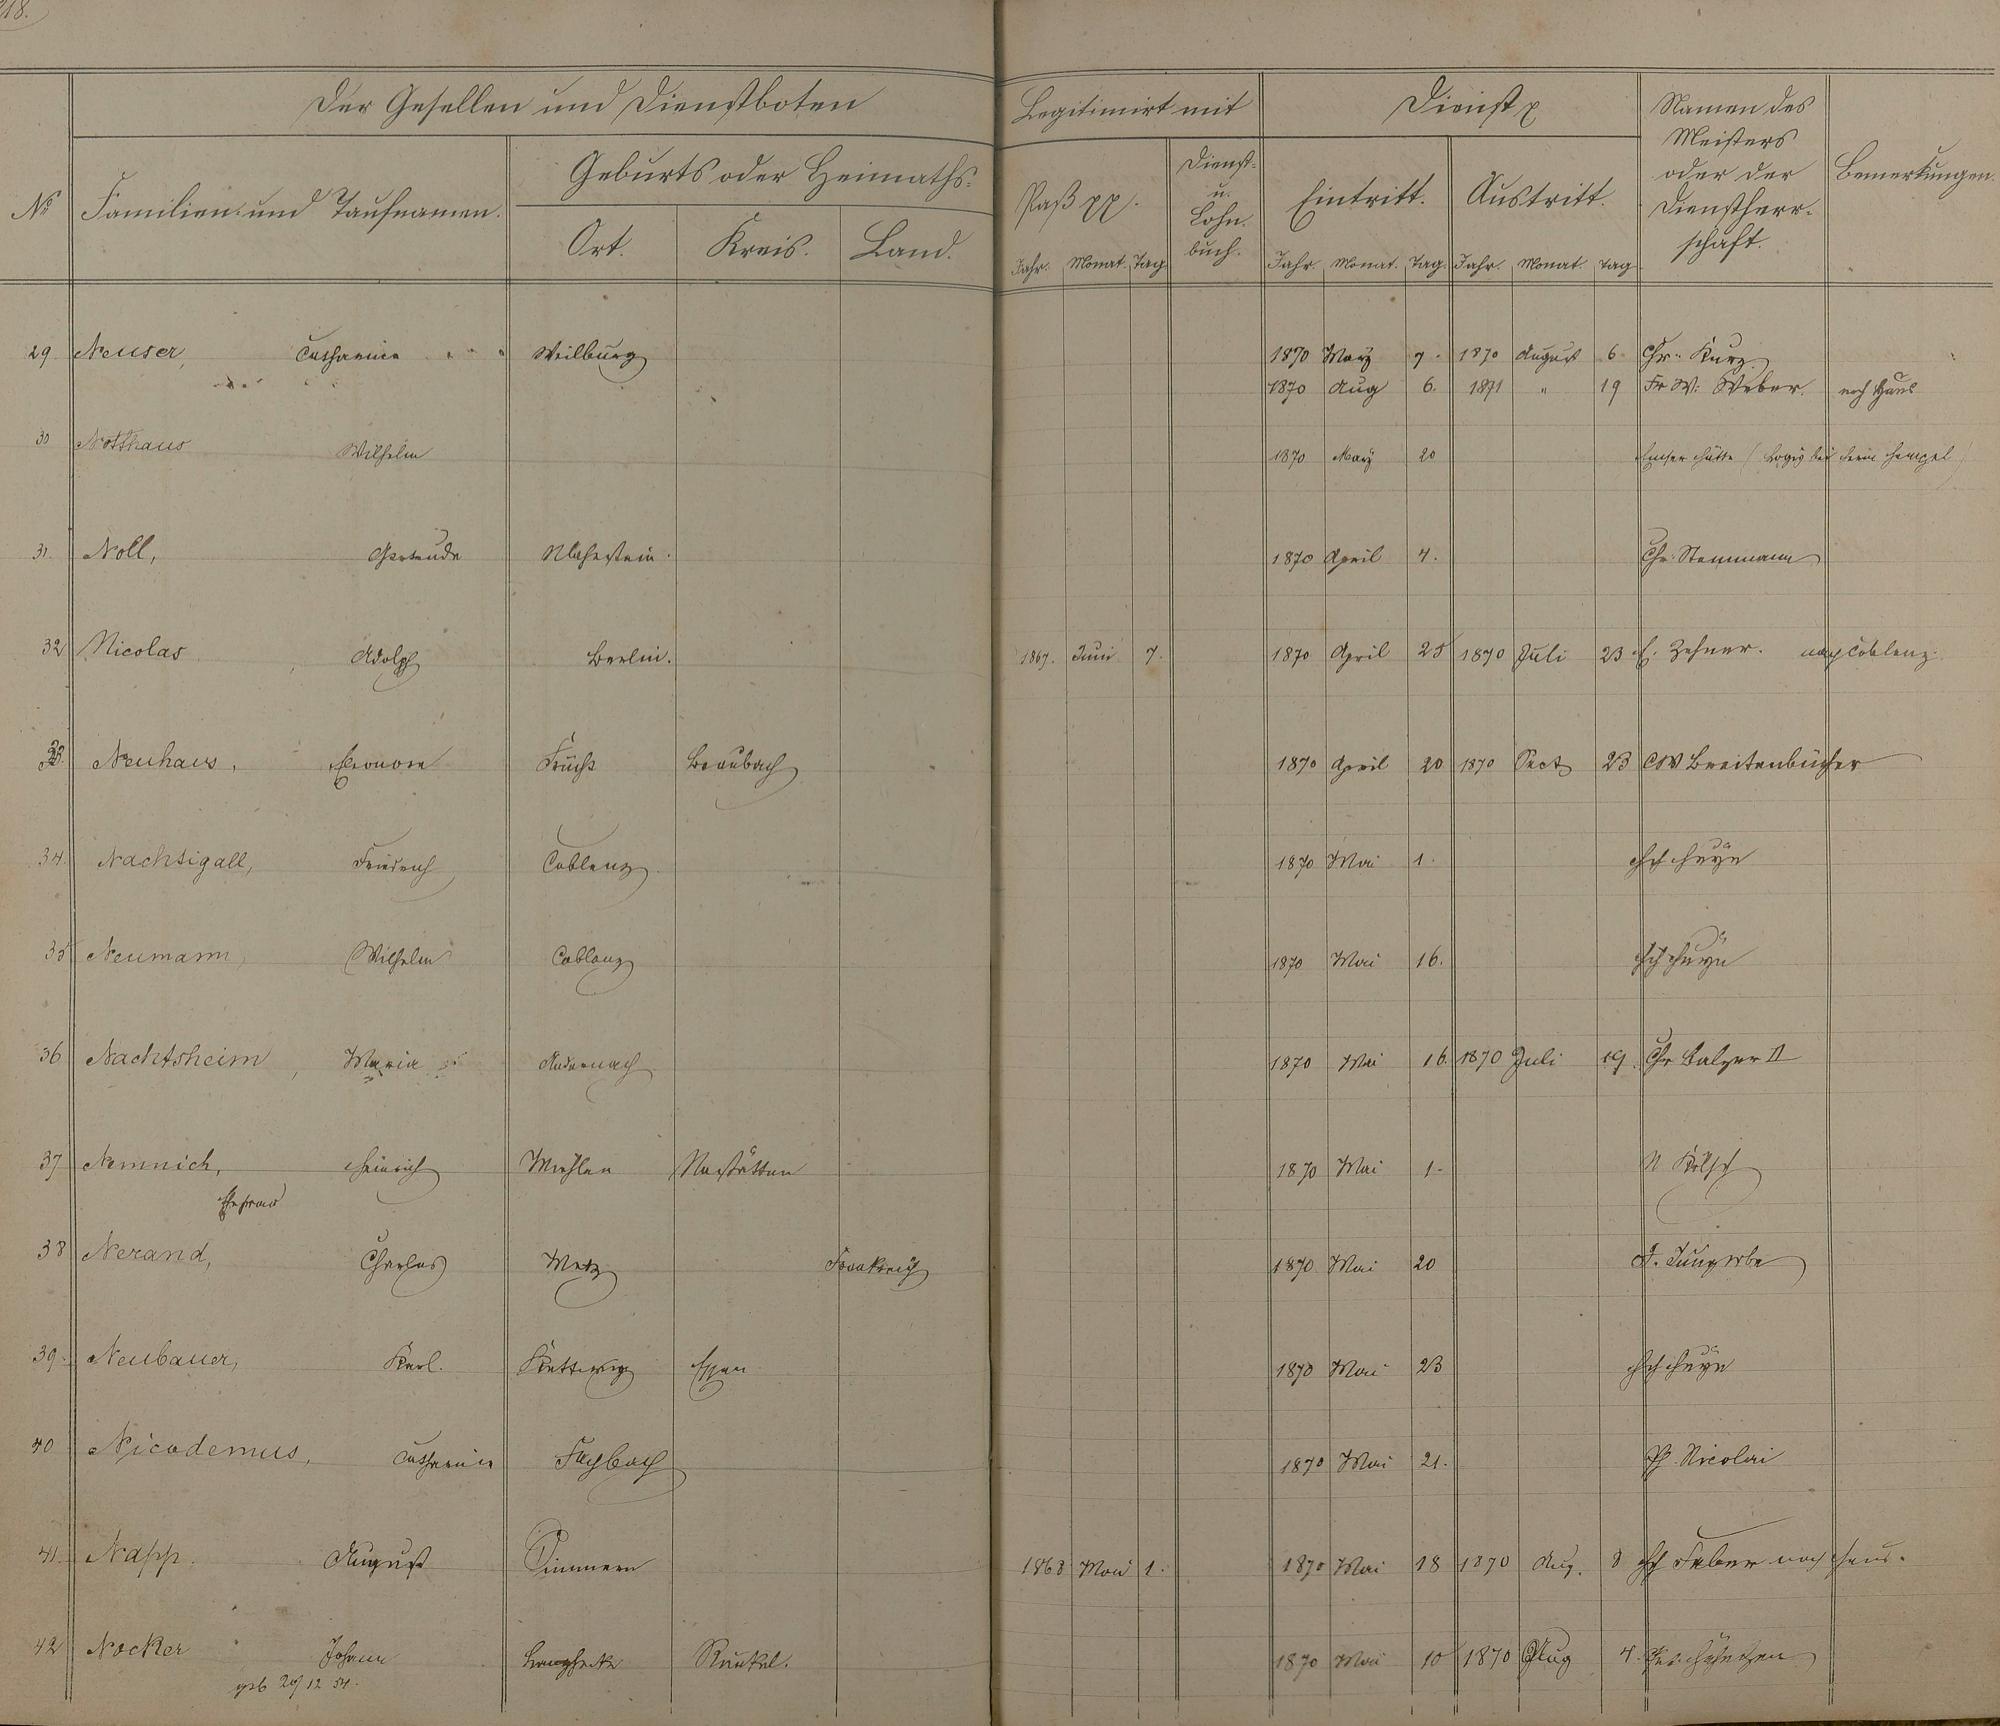 218.
Der Gesellen und Dienstboten
Legitimirt mit
Dienst
Namen des Meisters oder der Dienstherrschaft.
Bemerkungen.
No
Familien und Taufnamen.
Geburts oder Heimaths-
Ort. Kreis. Land.
Paß pp.
Dienst- u. Lohn- buch.
Eintritt. Austritt.
Jahr. Monat. Tag. Jahr. Monat. Tag. Jahr. Monat. Tag
29 Neuser, Catharine Weilburg 1870 März 7. 1870 August 6 Chr. Kurz
1870 Aug 6. 1871 " 19 Fr W. Weber. nach Haus
30 Notthaus Wilhelm 1870 März 20 Emser Hütte (Logis bei
31. Noll, Gertrude 1870 April 4. Chr. Stemmann
32 Nicolas Adolph Berlin. 1867. Juni 7. 1870 April 25 1870 Juli 23 Zehner. nach Coblenz.
33. Neuhaus, Eleonore Frücht Braubach 1870 April 20 1870 Sept 23 CW Breitenbücher
34. Nachtigall, Friedrich Coblenz 1870 Mai 1.
35 Neumann, Wilhelm Coblenz 1870 Mai 16.
36 Nachtsheim, Maria Andernach 1870 Mai 16. 1870 Juli 19. Chr Balzer II
37 Nemnich, Heinrich Miehlen Nastätten 1870 Mai 1.
Ehefrau
38 Nerand, Charles Metz Frankreich 1870 Mai 20
39. Neubauer, Karl. Kettwig Essen 1870 Mai 23
40 Nicodemus, Catharine Fachbach 1870 Mai 21. Ph. Nicolai
41. Napp. August Simmern 1868 Mai 1. 1870 Mai 18 1870 Aug. 8 Faber nach Haus.
42 Nocker Johann Langhecke Runkel. 1870 Mai 10 1870 Aug 4.
geb 20/12 54.